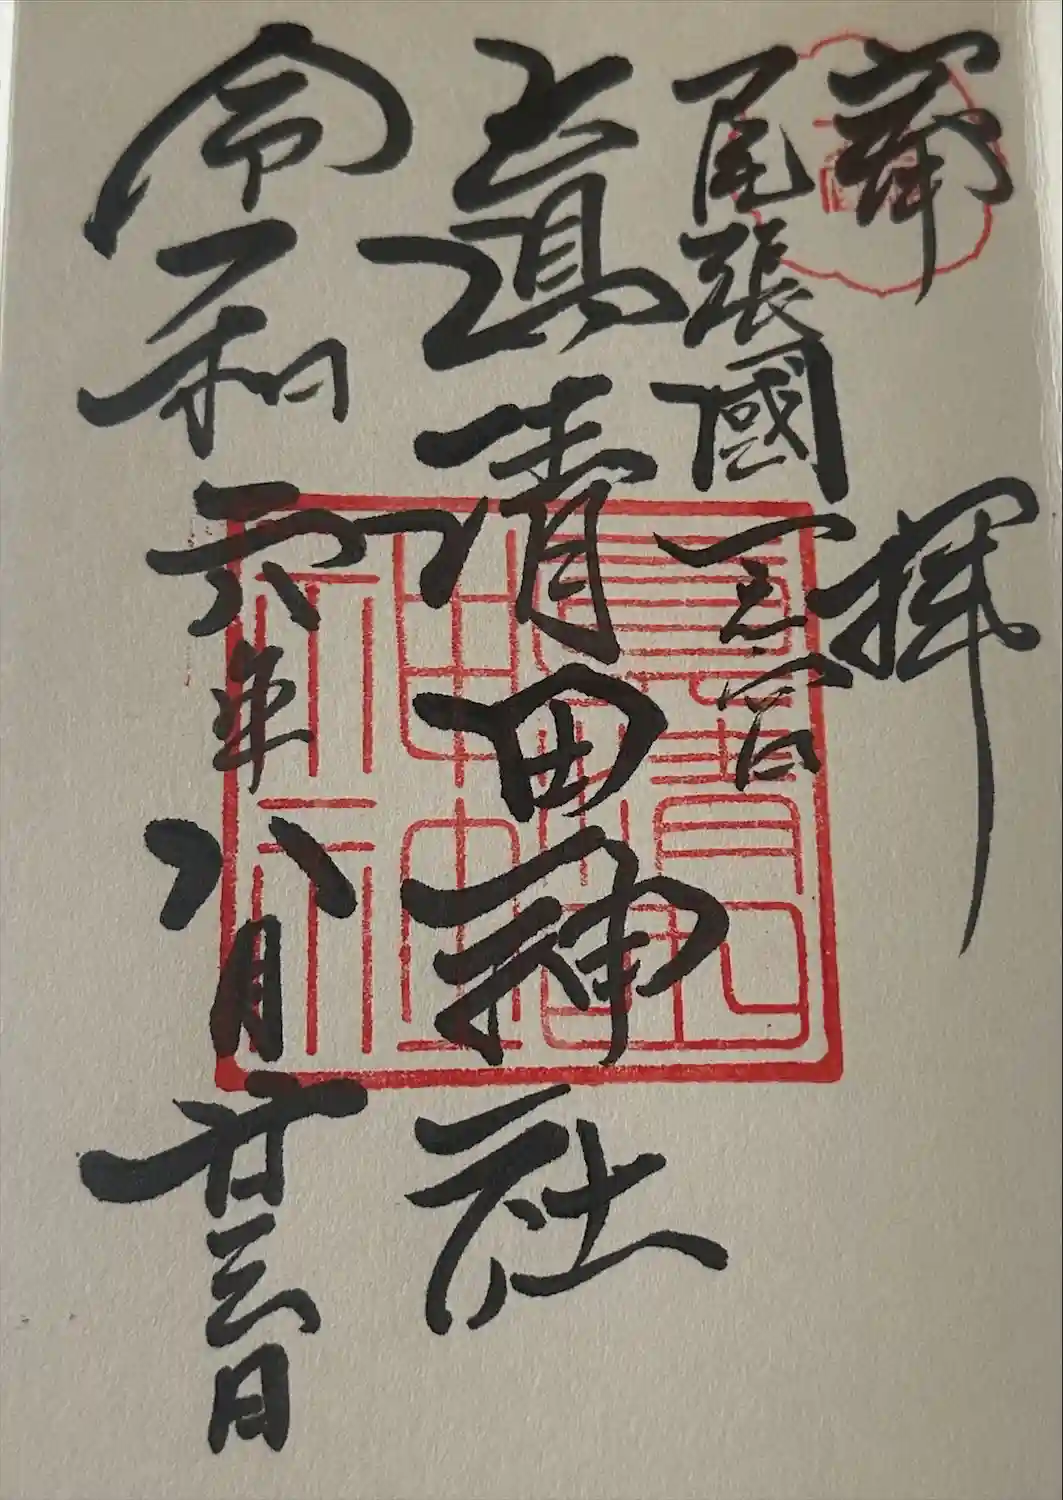 奉拝
尾張國一宮
真清田神社
令和六年八月廿三日